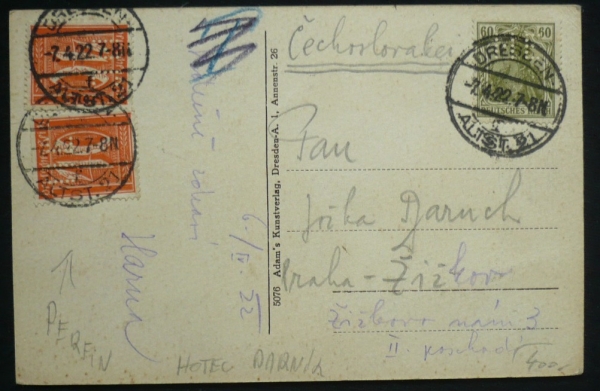 DRESDEN
-7.4.22.7-8N
60 60
DRESDEN
-7.4.22.7-8N
ALTST. 31
-7.4.22.7-8N
ALTST. 31
Čechoslovakei
5076 Adam's Kunstverlag, Dresden-A. 1, Annenstr. 26
Pan
Jožka Baruch
Praha-Žižkov
Žižkovo nám. 3
II.
6./IV. 22
HOTEL